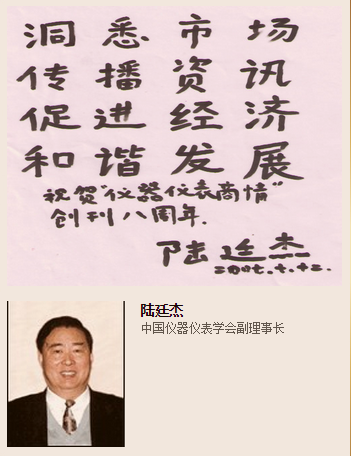 洞悉市场
传播资讯
促进经济
和谐发展
祝贺“仪器仪表商情”
创刊八周年.
陆廷杰
陆廷杰
中国仪器仪表学会副理事长